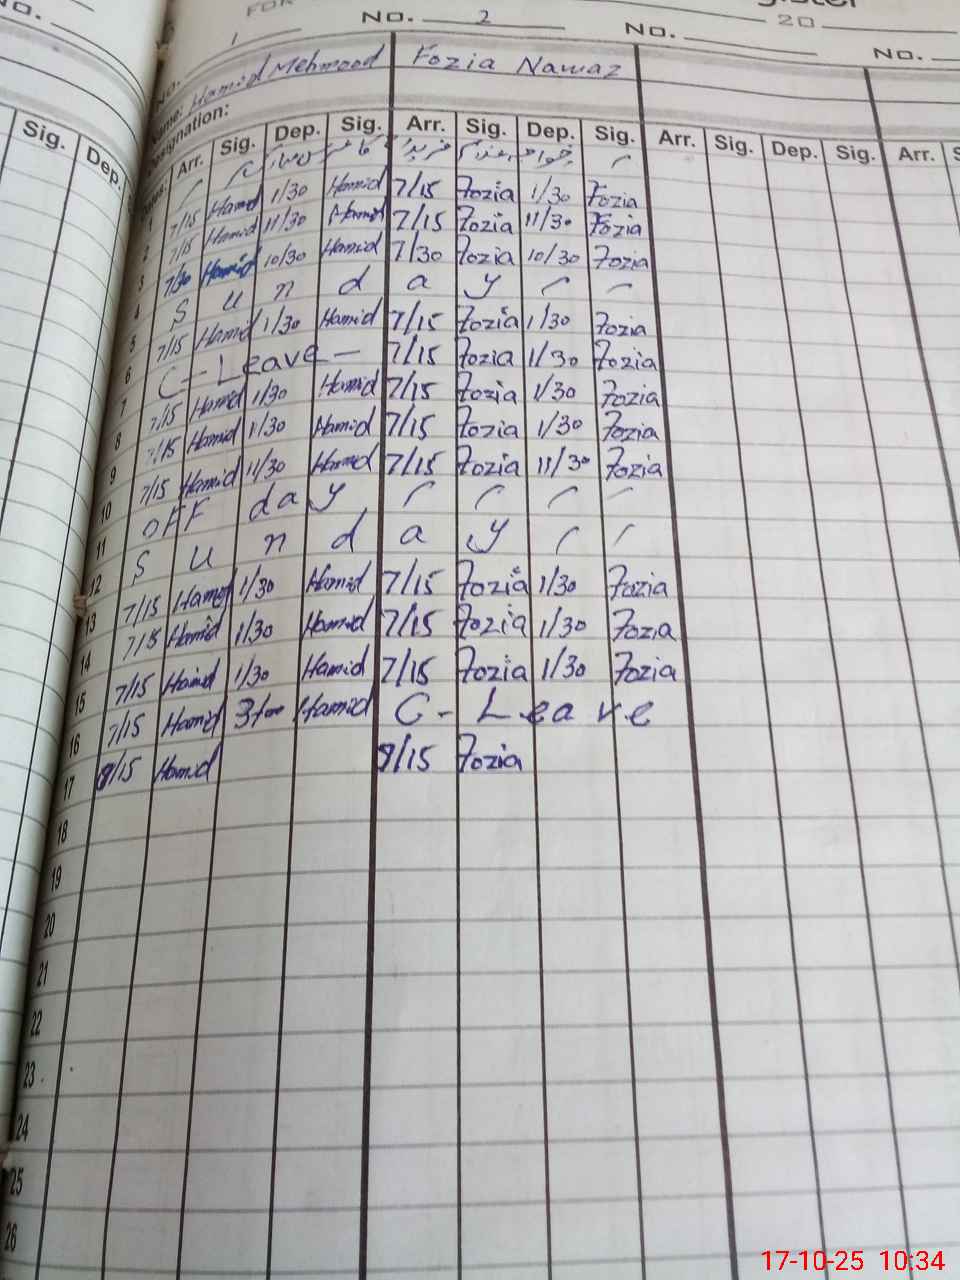 No. 1 No. 2 No. No.
20
Name: Hamid Mehmood Fozia Nawaz
Designation:
Sig. Dep. Arr. Sig. Dep. Sig. Arr. Sig. Dep. Sig. Arr. Sig. Dep. Sig. Arr.
1 7/15 Hamid 1/30 Hamid 7/15 Fozia 1/30 Fozia
2 7/15 Hamid 11/30 Hamid 7/15 Fozia 11/30 Fozia
3 7/30 Hamid 10/30 Hamid 7/30 Fozia 10/30 Fozia
4 S u n d a y
5 7/15 Hamid 1/30 Hamid 7/15 Fozia 1/30 Fozia
6 C-Leave- 7/15 Fozia 1/30 Fozia
7 7/15 Hamid 1/30 Hamid 7/15 Fozia 1/30 Fozia
8 7/15 Hamid 1/30 Hamid 7/15 Fozia 1/30 Fozia
9 7/15 Hamid 11/30 Hamid 7/15 Fozia 11/30 Fozia
10 OFF day
11 S u n d a y
12 7/15 Hamid 1/30 Hamid 7/15 Fozia 1/30 Fozia
13 7/15 Hamid 1/30 Hamid 7/15 Fozia 1/30 Fozia
14 7/15 Hamid 1/30 Hamid 7/15 Fozia 1/30 Fozia
15 7/15 Hamid Hamid C-Leave
16 8/15 Hamid 8/15 Fozia
17
18
19
20
21
22
23
24
25
26
17-10-25 10:34